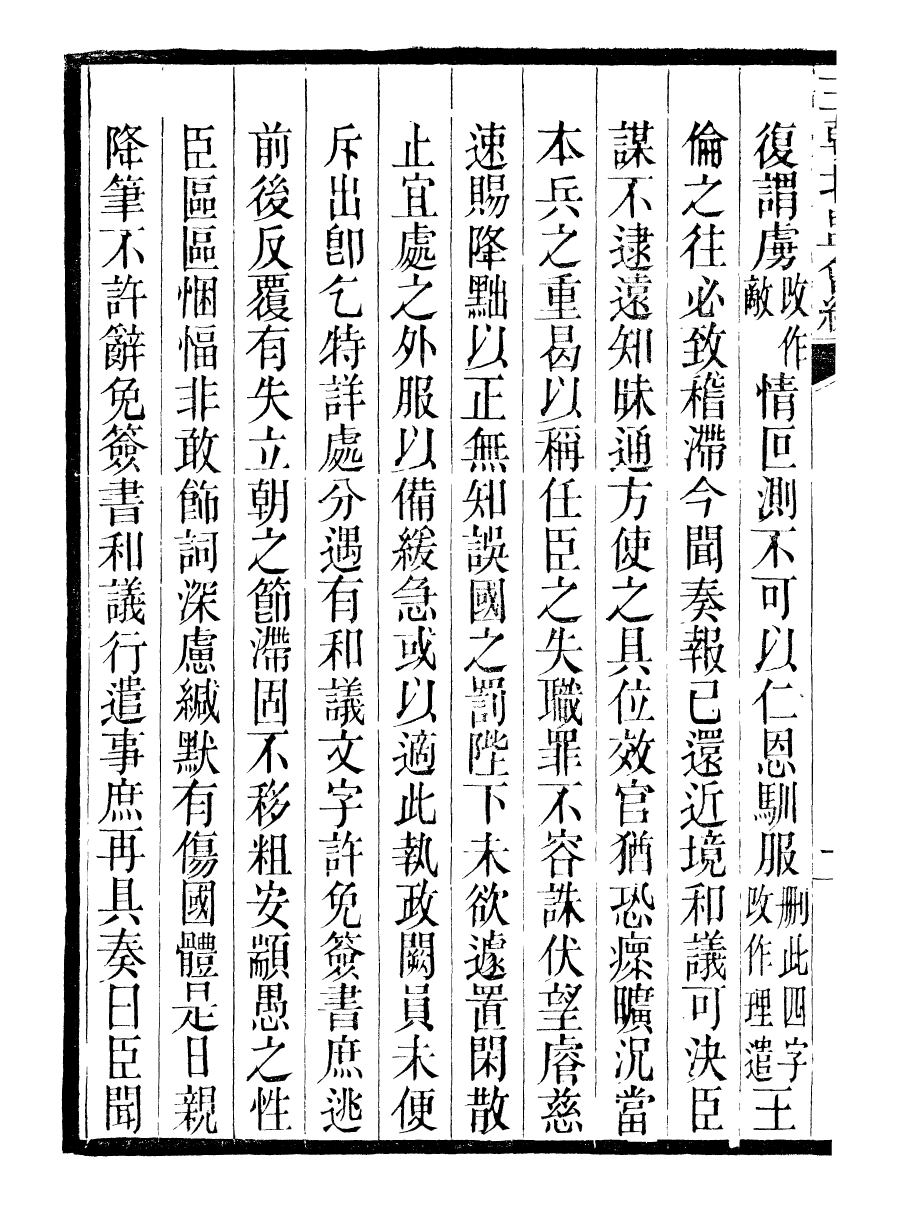 復謂虜改作敵情叵測不可以仁恩馴服刪此四字改作理遣王
倫之往必致稽滯今聞奏報已還近境和議可決臣
謀不逮遠知昧通方使之具位效官猶恐瘝曠況當
本兵之重曷以稱任臣之失職罪不容誅伏望睿慈
速賜降黜以正無知誤國之罰陛下未欲遽置閑散
止宜處之外服以備緩急或以適此執政闕員未便
斥出卽乞特詳處分遇有和議文字許免簽書庶逃
前後反覆有失立朝之節滯固不移粗安顓愚之性
臣區區悃愊非敢飾詞深慮緘默有傷國體是日親
降筆不許辭免簽書和議行遣事庶再具奏曰臣聞